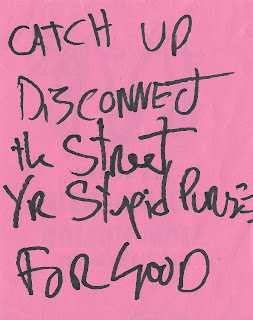 CATCH UP
DISCONNECT
the Street
YR Stupid PURSE
FOR GOOD